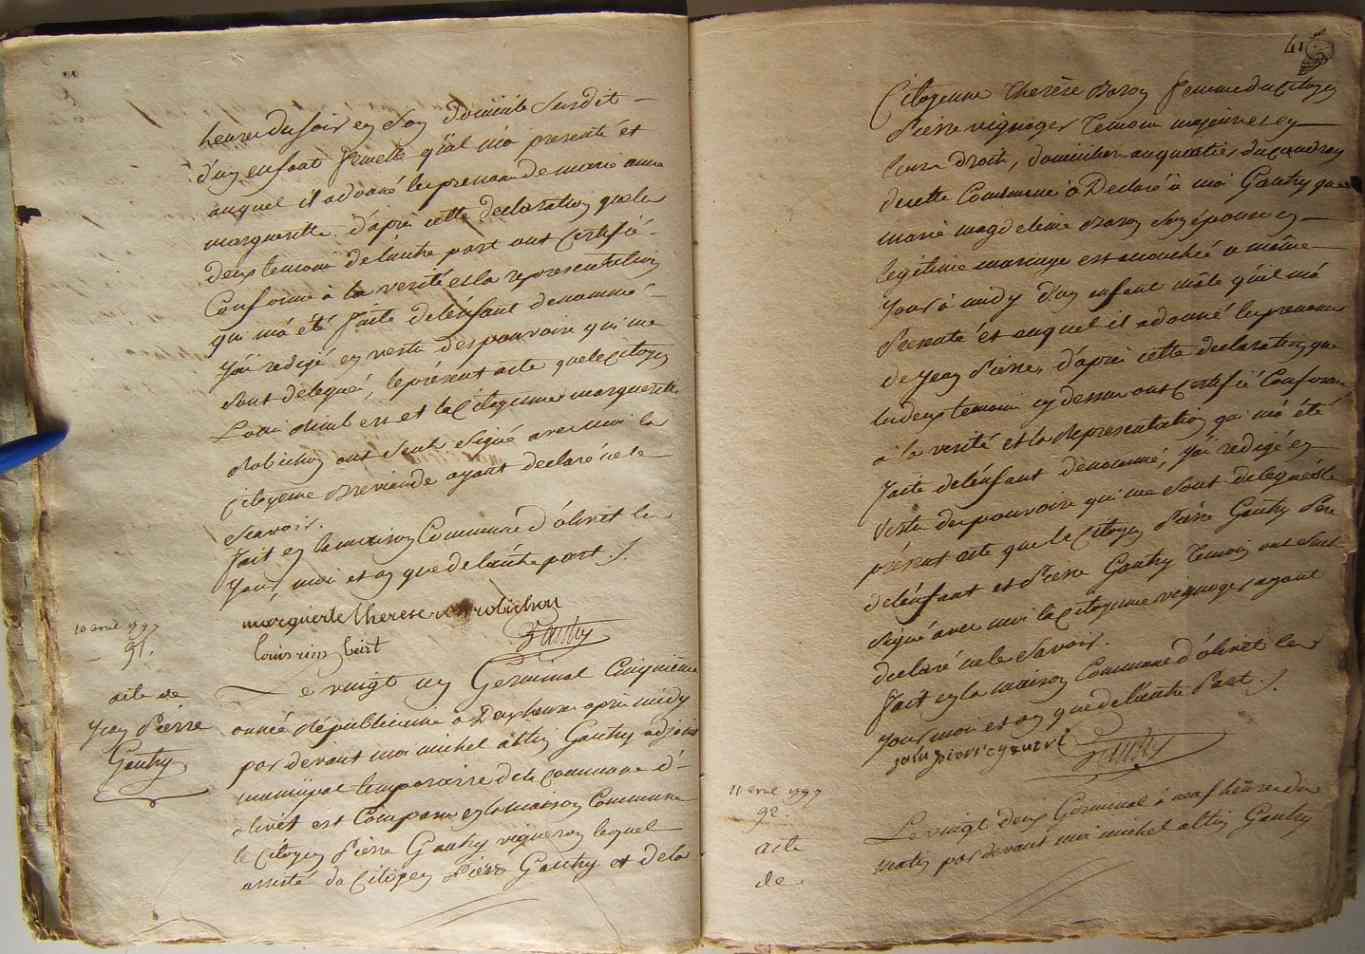 heure du soir en son domicile susdit
d'un enfant femelle qu'il m'a presenté et
auquel il a donné les prenoms de marie anne
marguerite d'après cette declaration que les
deux temoins de l'autre part ont certifié
conforme à la verité et la representation
qui m'a été faite de l'enfant denommé
j'ai redigé en vertu des pouvoirs qui me
sont delegués, le présent acte que le citoyen
Louis et la Citoyenne marguerite
Robichon ont seuls signé avec moi la
Citoyenne ayant declaré ne le
sçavoir.
fait en la maison Commune d'olivet les
jour, mois et an que de l'autre part ./.
marguerite therese robichon
10 avril 1797
91.
acte de
Jean Pierre
Gautry
Le vingt un Germinal Cinquieme
année Républicaine a Deux heures après midy
par devant moi michel Gautry adjoint
municipal temporaire de la commune d'
olivet est Comparu en la maison Commune
le Citoyen Pierre Gautry vigneron lequel
assisté du Citoyen Pierre Gautry et de la
41
Citoyenne Therèse Baron femme du Citoyen
Pierre vignoger Temoins majeurs et en
leurs droits, domiciliés au quartier du
de cette Commune a Declaré à moi Gautry que
marie magdeleine Baron son épouse en
legitime mariage est accouchée ce même
jour à midy d'un enfant mâle qu'il m'a
Presenté et auquel il a donné les prenoms
de Jean Pierre, d'après cette declaration que
les deux temoins cy dessus ont Certifié Conforme
a la verité et la Representation qui m'a été
faite de l'enfant dénommé, j'ai redigé en
vertu des pouvoirs qui me sont delegués le
présent acte que le Citoyen Pierre Gautry Pere
de l'enfant et Pierre Gautry Temoin ont seuls
signé avec moi la Citoyenne vignoger ayant
declaré ne le sçavoir.
fait en la maison Commune d'olivet les
jour mois et an que de l'autre Part ./.
11 avril 1797
92
acte
de
Le vingt Deux Germinal à neuf heures du
matin par devant moi michel Gautry